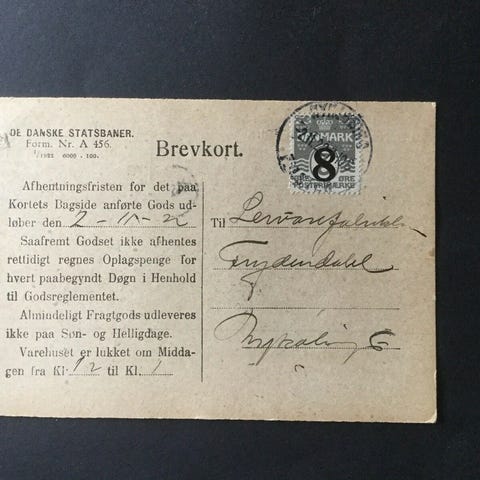 DE DANSKE STATSBANER.
Form. Nr. A 456.
1/1922 6000 - 100.
Brevkort.
Afhentningsfristen for det paa
Kortets Bagside anførte Gods ud-
løber den 2-11-22
Saafremt Godset ikke afhentes
rettidigt regnes Oplagspenge for
hvert paabegyndt Døgn i Henhold
til Godsreglementet.
Almindeligt Fragtgods udleveres
ikke paa Søn- og Helligdage.
Varehuset er lukket om Midda-
gen fra Kl. 12 til Kl. 1
DANMARK
8 8
ØRE ØRE
POSTFRIMÆRKE
Til
Frydendahl
Nykøbing